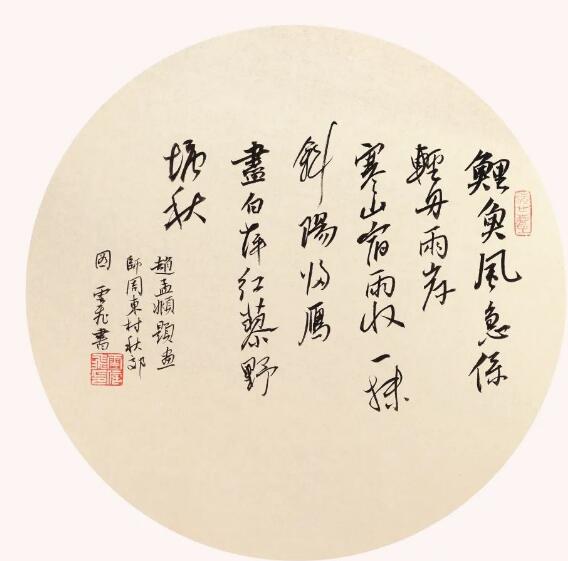 鯉魚風急係
輕舟兩岸
寒山宿雨收一抹
斜陽归鴈
盡白萍紅蓼野
塘秋
趙孟頫題畫
師周東村秋郊
図雲飛書